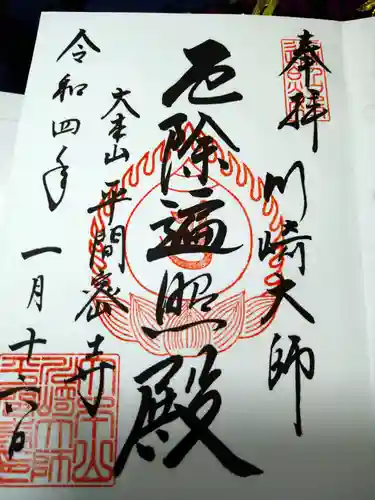 奉拝
川崎大師
厄除遍照殿
大本山
平間密寺
令和四年
一月十六日